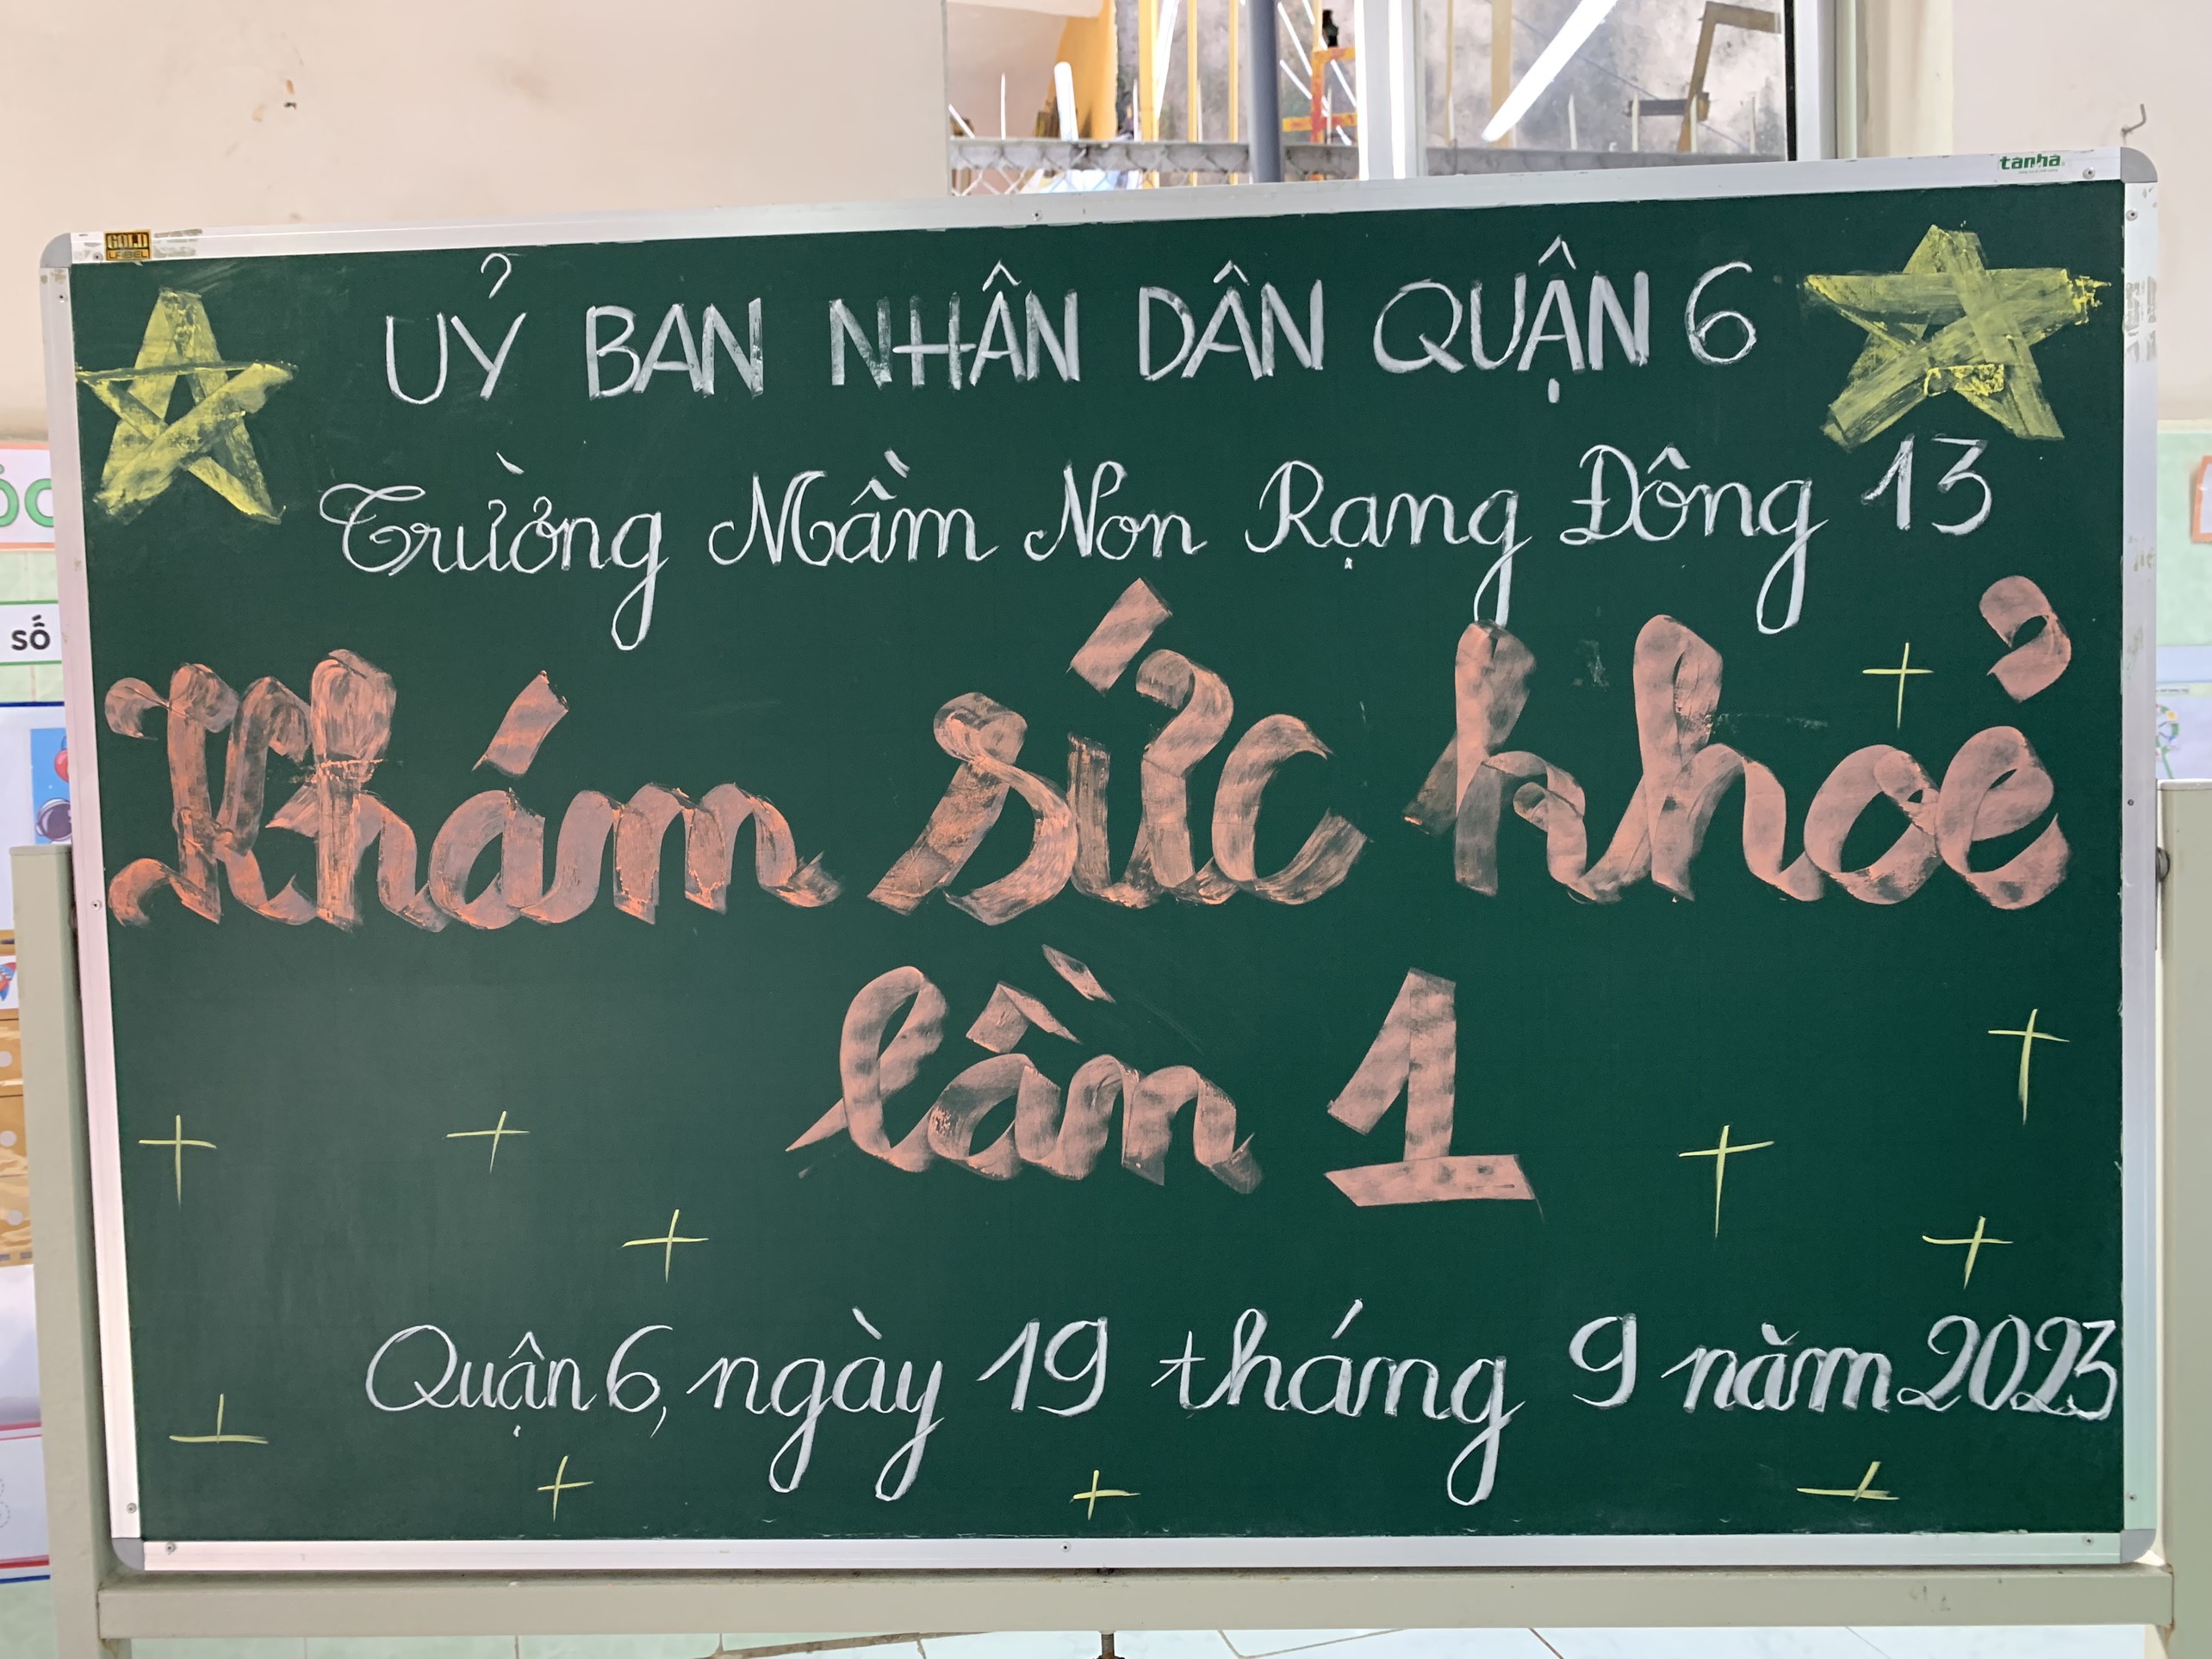 tanha
GOLD
LABEL
UỶ BAN NHÂN DÂN QUẬN 6
Trường Mầm Non Rạng Đông 13
Khám sức khoẻ
lần 1
Quận 6, ngày 19 tháng 9 năm 2023
SỐ